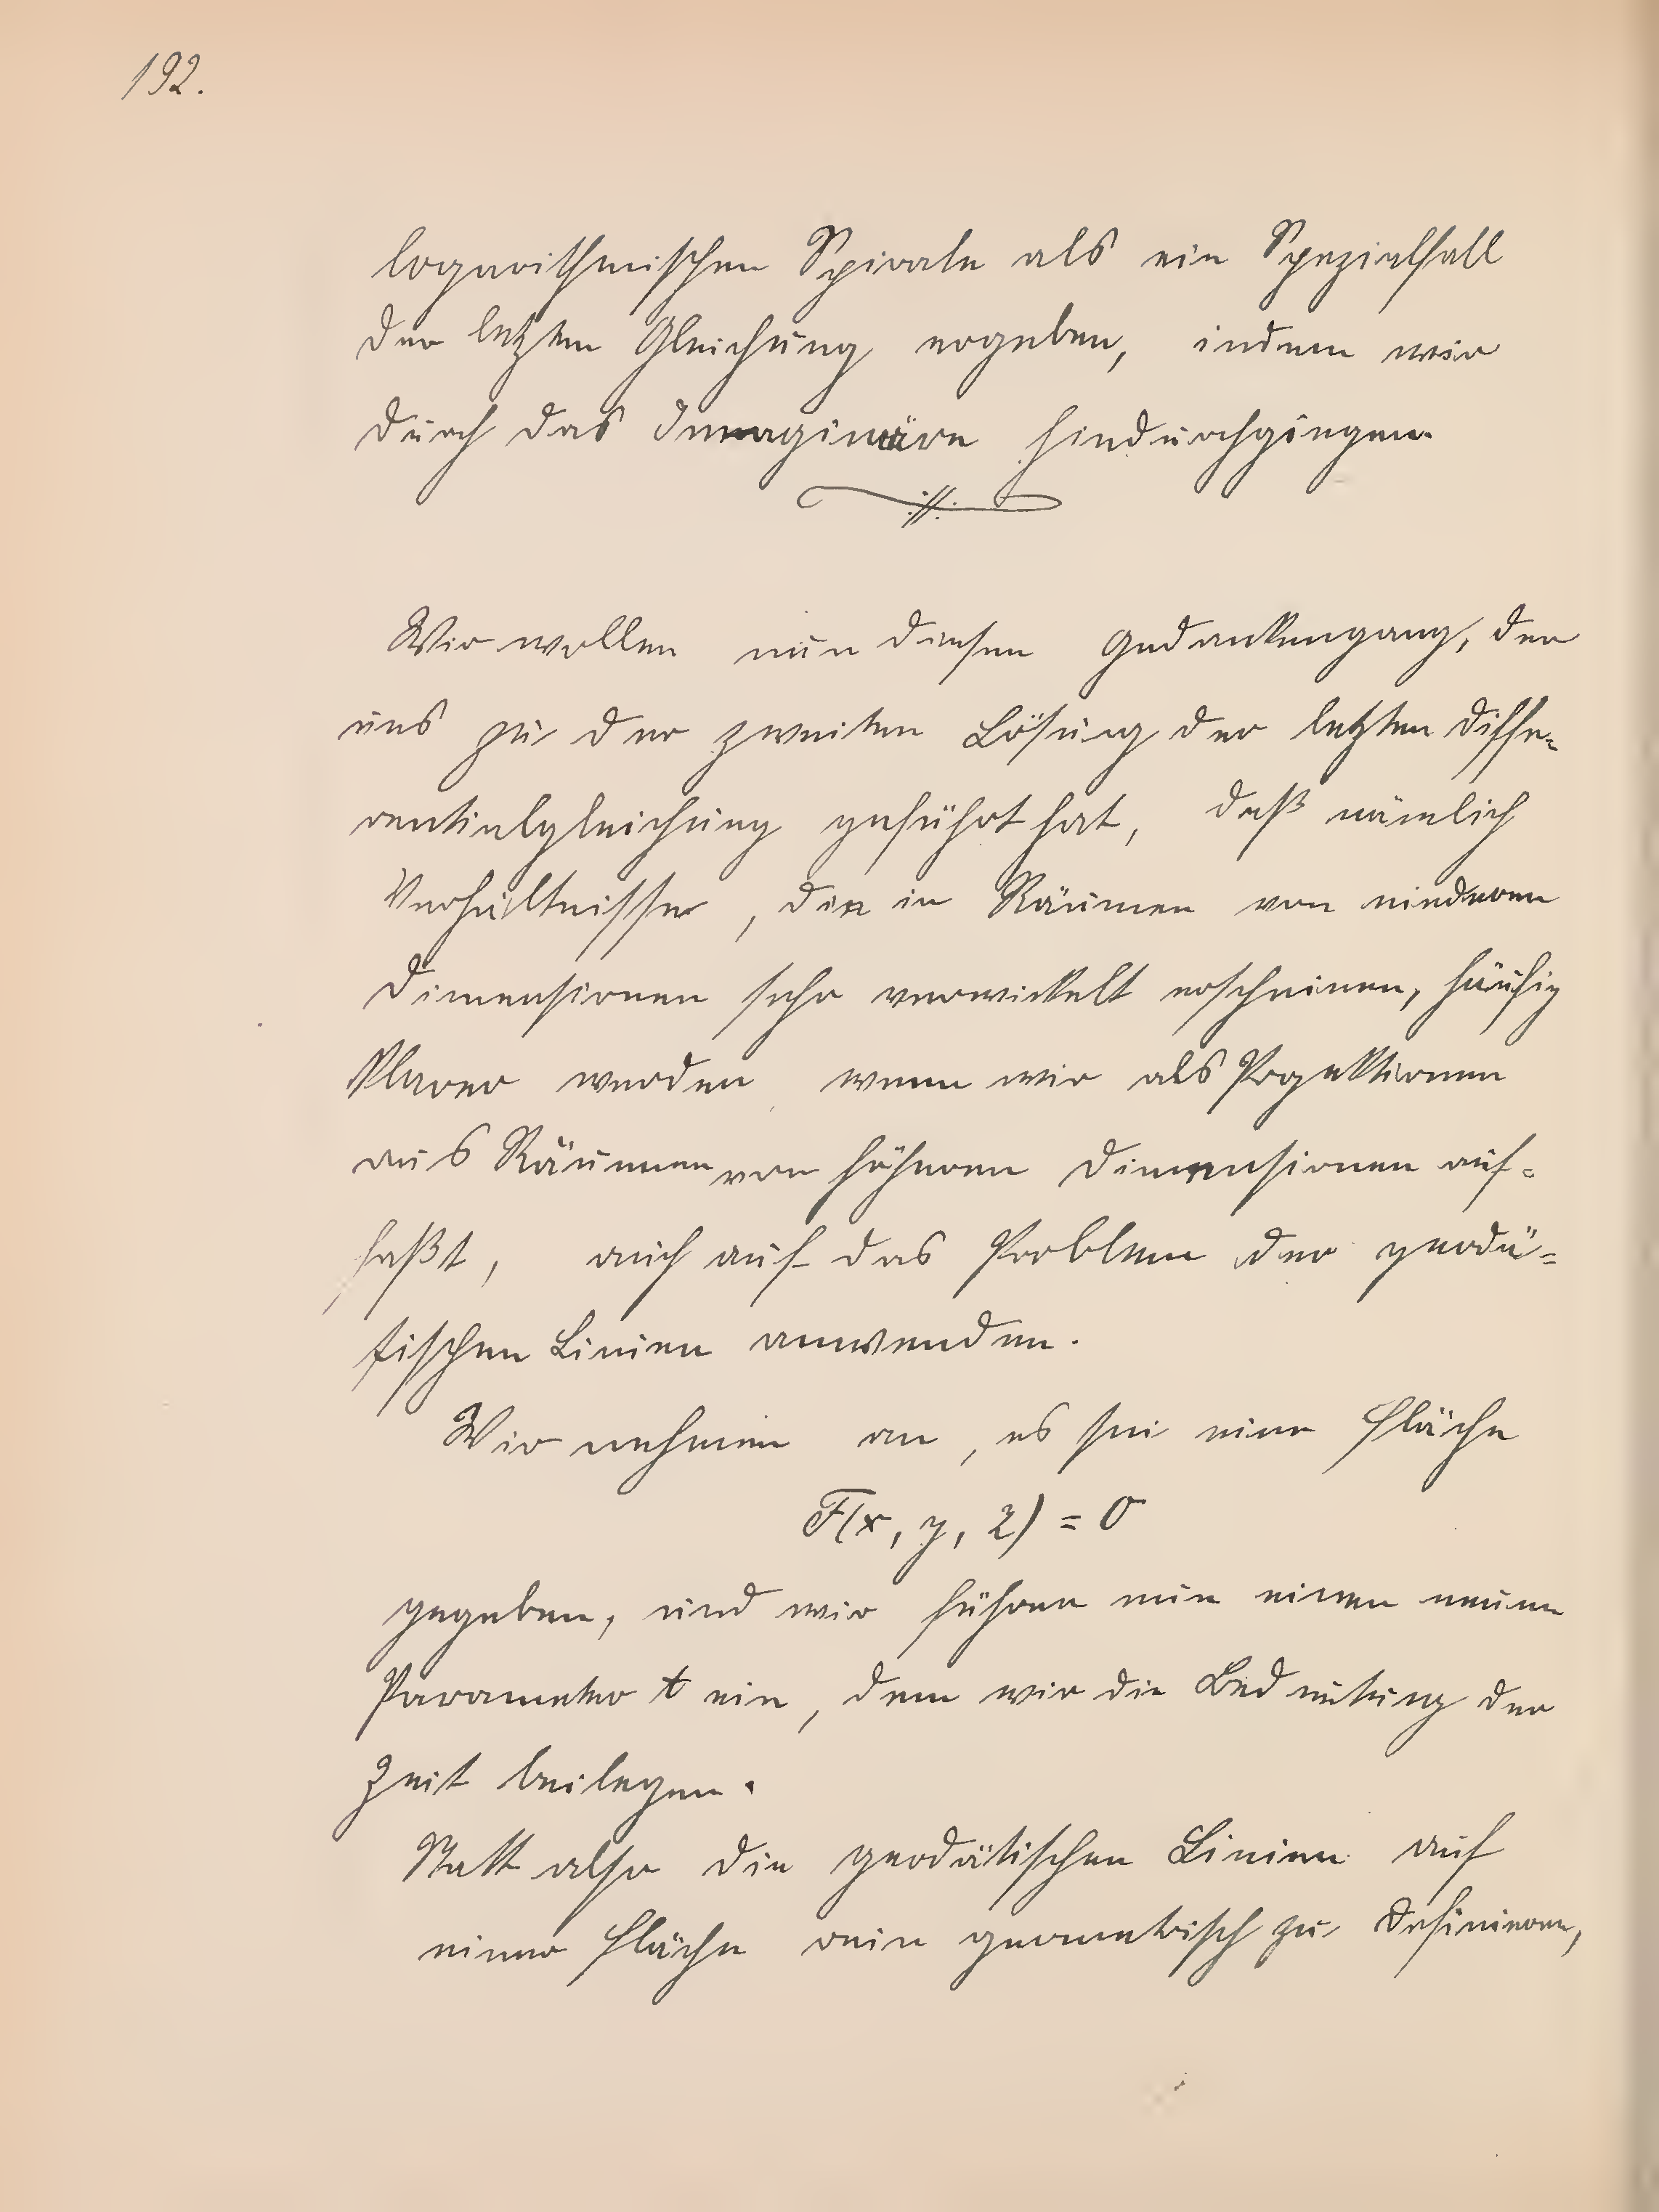 192.
logarithmischen Spirale als ein Spezialfall
der letzten Gleichung ergeben, indem wir
durch das Imaginäre hindurchgingen.
Wir wollen nun diesen Gedankengang, der
uns zu der zweiten Lösung der letzten Diffe=
rentialgleichung geführt hat, daß nämlich
Verhältnisse, die in Räumen von niederen
Dimensionen sehr verwickelt erscheinen, häufig
klarer werden wenn wir als Projektionen
aus Räumen von höheren Dimensionen auf=
faßt, auch auf das Problem der geodä=
tischen Linien anwenden.
Wir nehmen an, es sei eine Fläche
F(x, y, z) = 0
gegeben, und wir führen nun einen neuen
Parameter t ein, dem wir die Bedeutung der
Zeit beilegen.
Statt also die geodätischen Linien auf
einer Fläche rein geometrisch zu definieren,